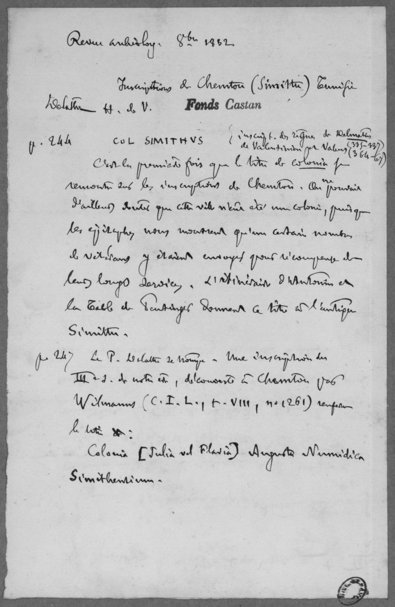 Revue archéolog. 8bre 1882
Inscriptions de Chemtou (Simitthu) Tunisie
Delattre H. de V. Fonds Castan
p. 244 COL SIMITHVS { inscript. des règnes de Dalmatius (335-337)
de Valentinien et Valens (364-67)
C'est la première fois que le titre de colonia se
rencontre sur les inscriptions de Chemtou. On pouvait
d'ailleurs douter que cette ville n'eût été une colonie, puisque
les épitaphes nous montrent qu'un certain nombre
de vétérans y étaient envoyés pour récompense de
leurs longs services. L'itinéraire d'Antonin et
la Table de Peutinger donnent ce titre à l'antique
Simitthu.
p. 247 Le P. Delattre se trompe. Une inscription du
III e s. de notre ère, découverte à Chemtou par
Wilmanns (C.I.L., t. VIII, no 1261) renferme
le titre :
Colonia [Julia vel Flavia] Augusta Numidica
Simithensium.